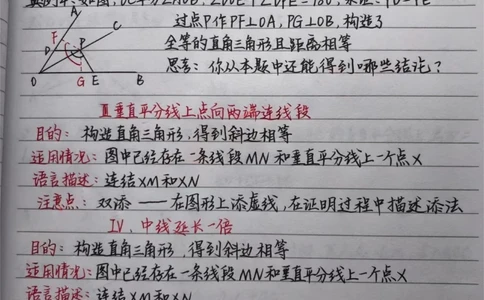 典例1:如图,OC平分∠AOB,∠DOE+∠DPE=180°,求证:PD=PE
过点P作PF⊥OA,PG⊥OB,构造3
全等的直角三角形且距离相等
思考:你从本题中还能得到哪些结论?
A
C
F
D
P
O
G
E
B
Ⅲ 垂直平分线上点向两端连线段
目的:构造直角三角形,得到斜边相等
适用情况:图中已经存在一条线段MN和垂直平分线上一个点X
语言描述:连结XM和XN
注意点:双添——在图形上添虚线,在证明过程中描述添法
Ⅳ、中线延长一倍
目的:构造直角三角形,得到斜边相等
适用情况:图中已经存在一条线段MN和垂直平分线上一个点X
语言描述:连结XM和XN